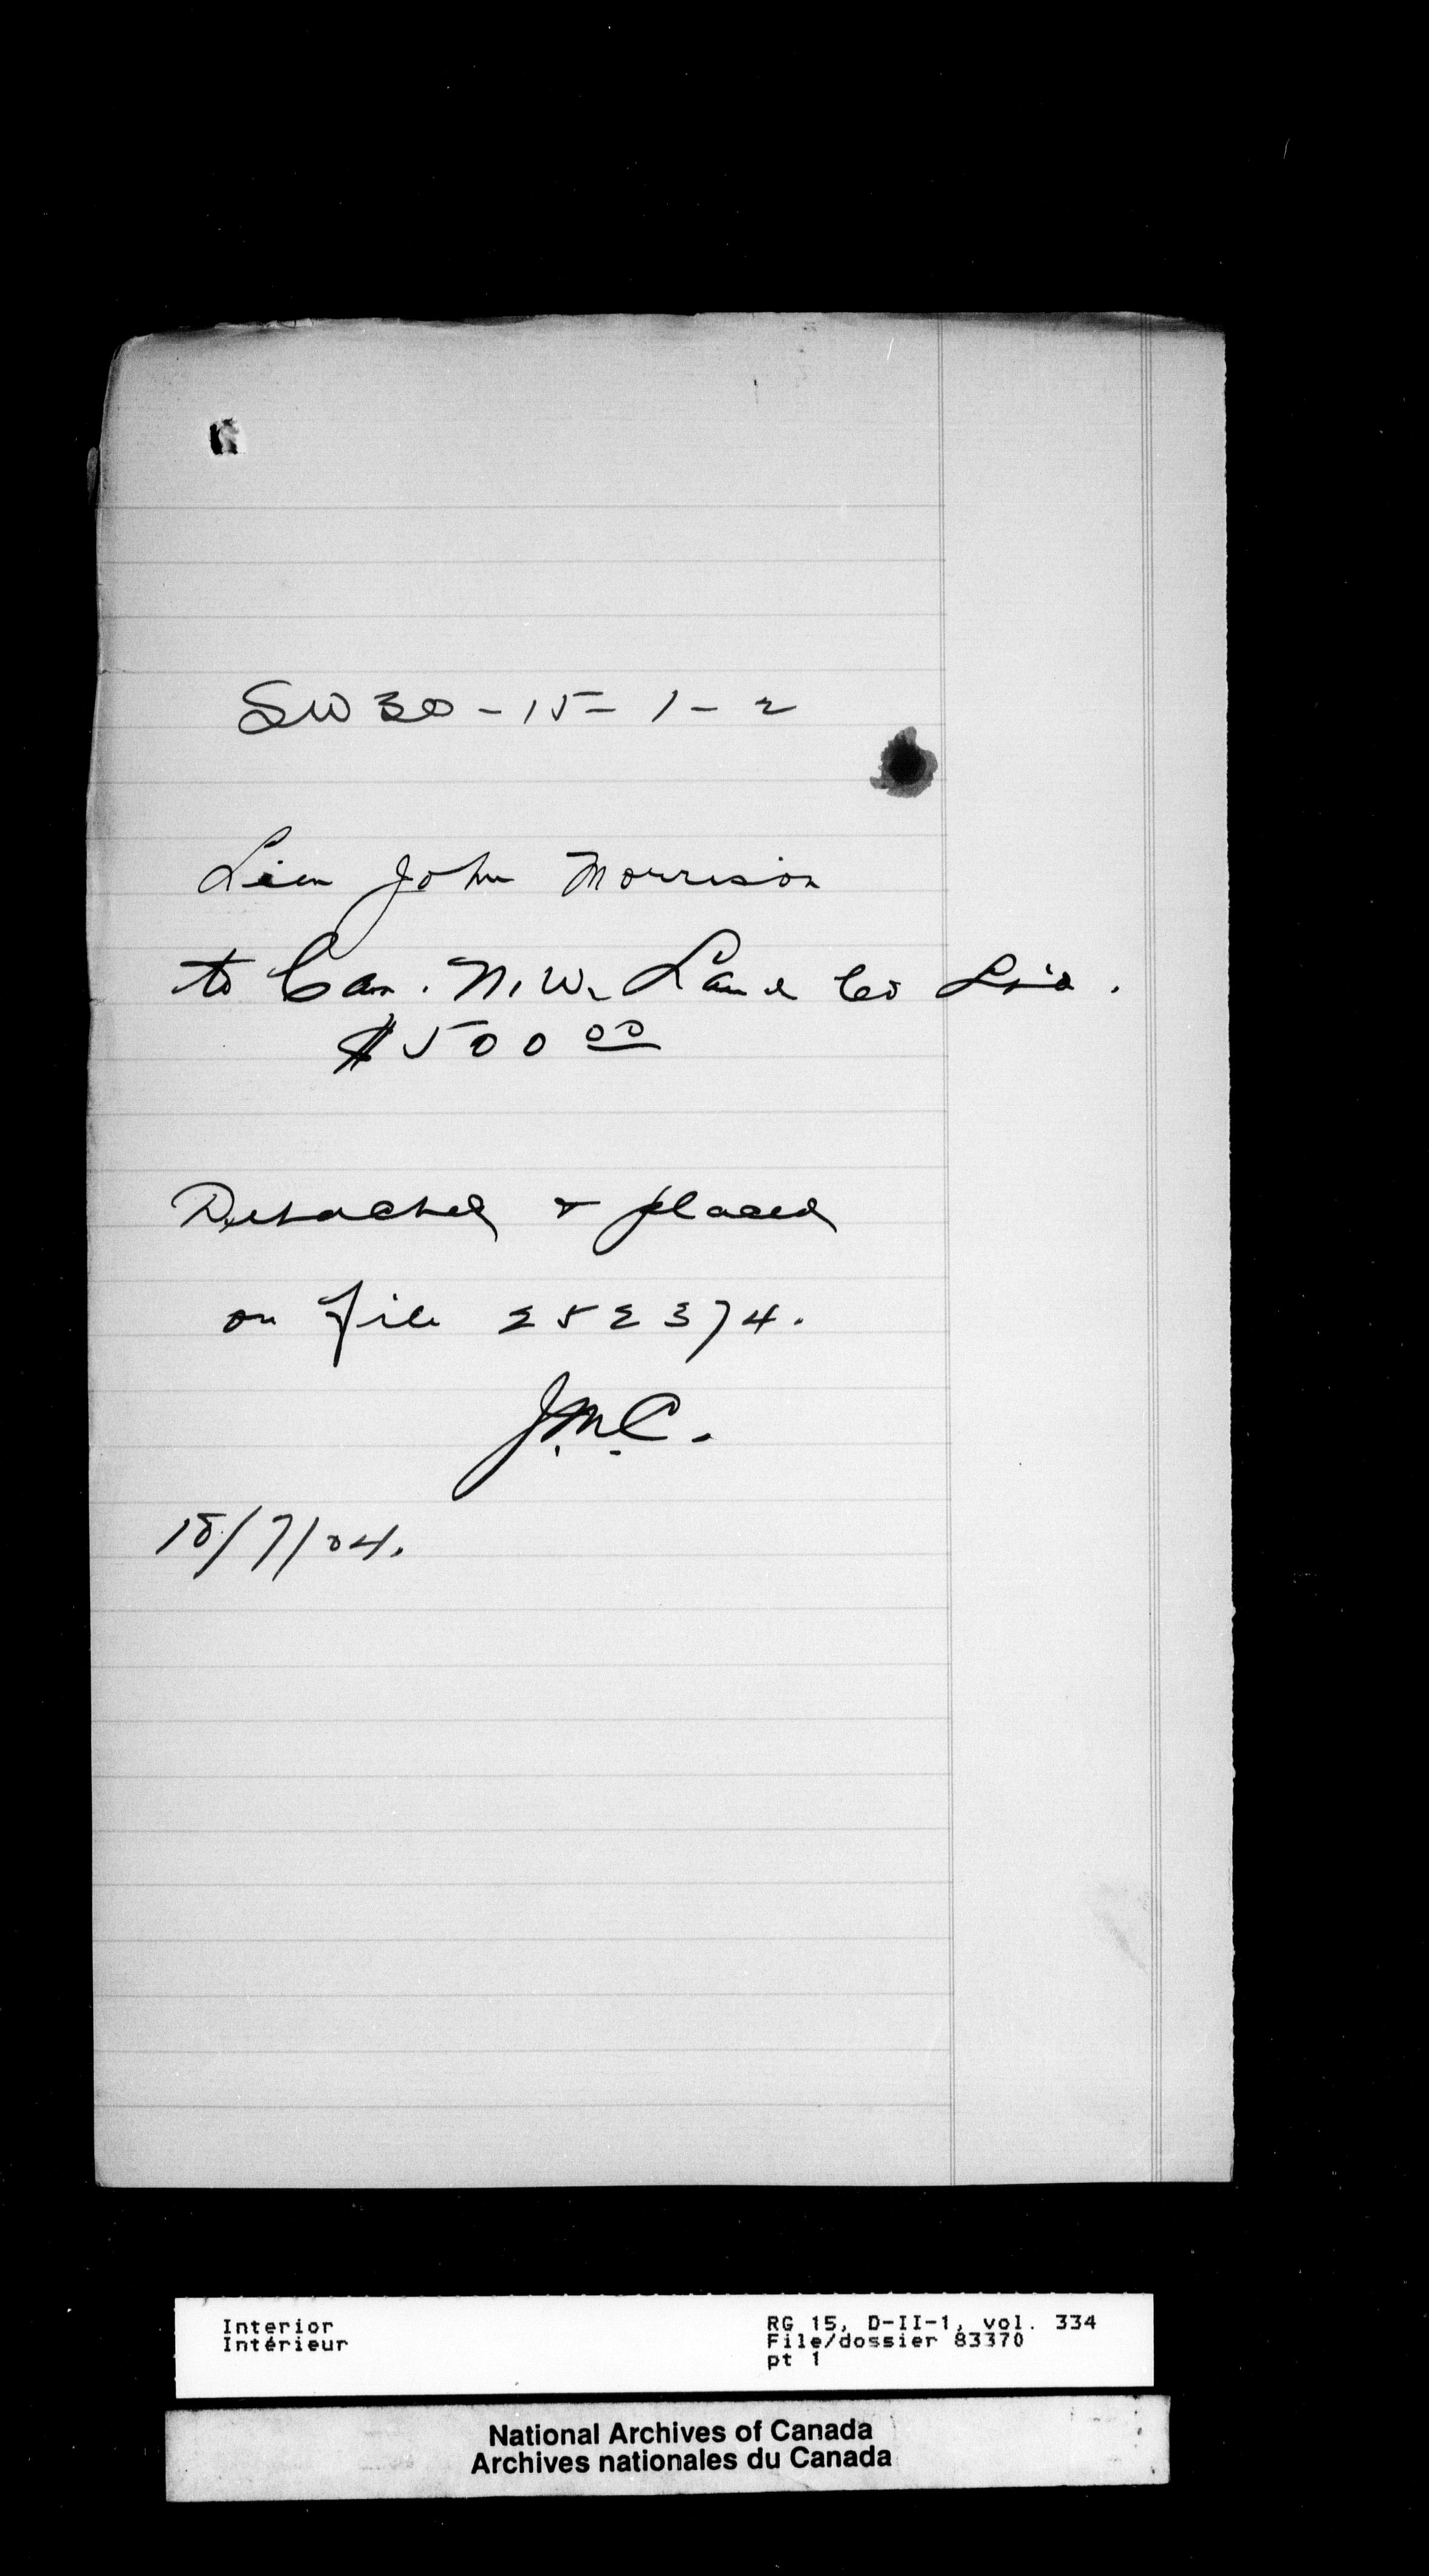 SW 30 - 15 - 1 - 2
Lien John Morrison
to Can. N.W. Land Co Ltd.
$500 00
Detached & placed
on file 252374.
J.M.C.
18/7/04.
Interior
Intérieur
RG 15, D-II-1, vol. 334
File/dossier 83370
pt 1
National Archives of Canada
Archives nationales du Canada